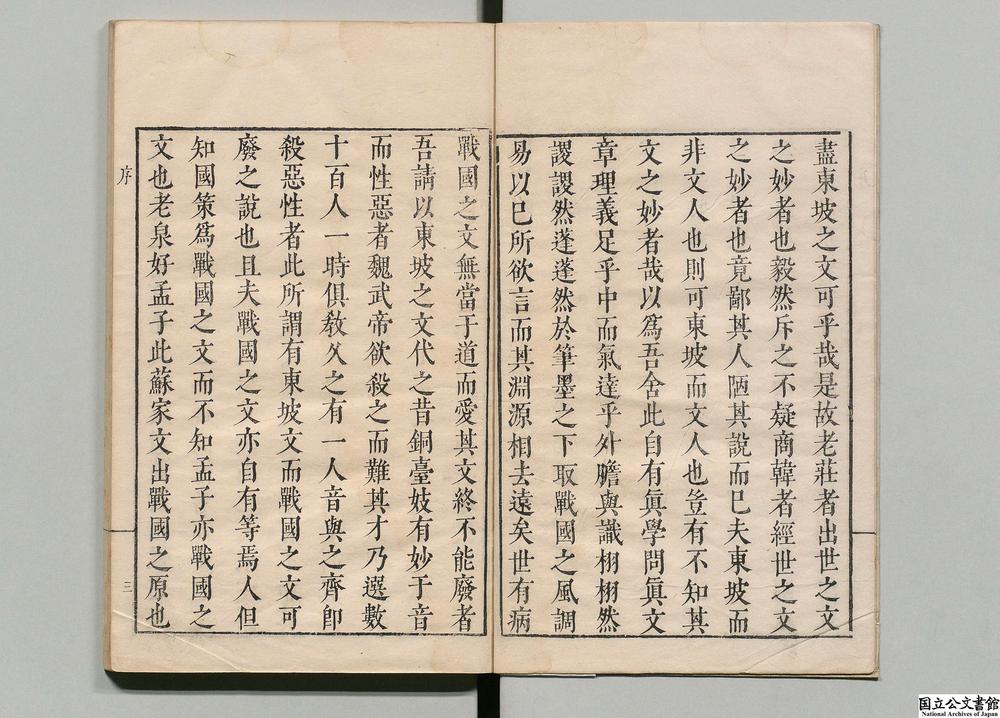 盡東坡之文可乎哉是故老莊者出世之文
之妙者也毅然斥之不疑商韓者經世之文
之妙者也竟鄙其人陋其說而已夫東坡而
非文人也則可東坡而文人也豈有不知其
文之妙者哉以爲吾舍此自有眞學問眞文
章理義足乎中而氣達乎外膽與識栩栩然
謖謖然蓬蓬然於筆墨之下取戰國之風調
易以巳所欲言而其淵源相去遠矣世有病
戰國之文無當于道而愛其文終不能廢者
吾請以東坡之文代之昔銅臺妓有妙于音
而性惡者魏武帝欲殺之而難其才乃選數
十百人一時俱敎久之有一人音與之齊卽
殺惡性者此所謂有東坡文而戰國之文可
廢之說也且夫戰國之文亦自有等焉人但
知國策爲戰國之文而不知孟子亦戰國之
文也老泉好孟子此蘇家文出戰國之原也
序
三
国立公文書館
National Archives of Japan